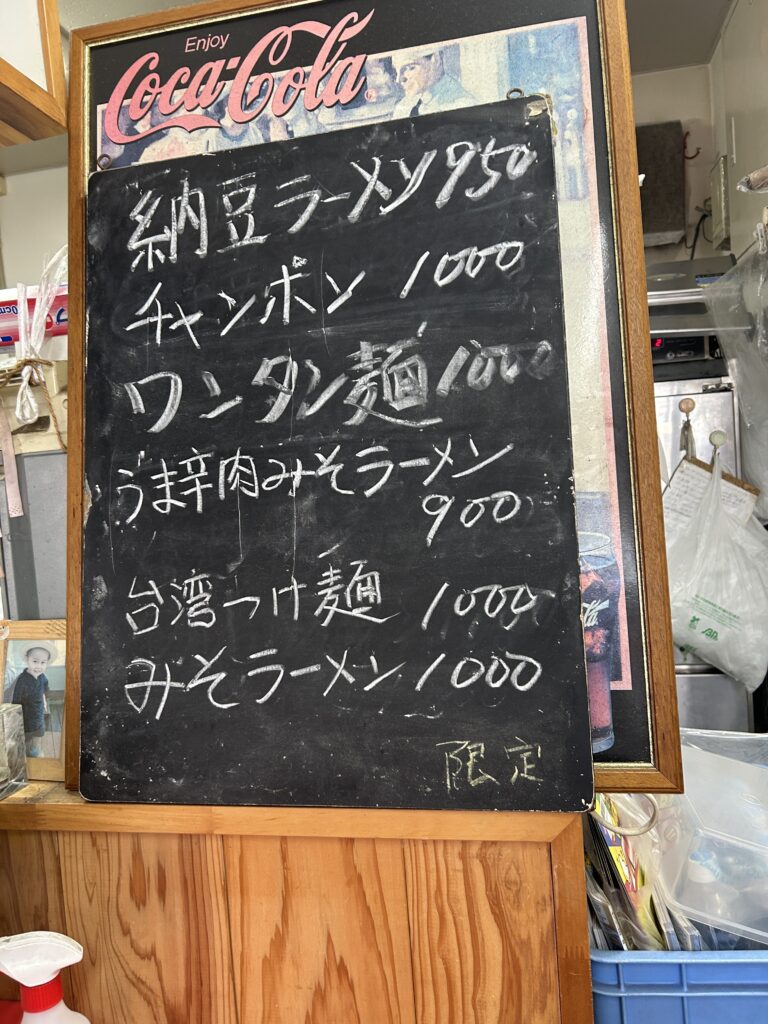 Enjoy
Coca-Cola
納豆ラーメン950
チャンポン 1000
ワンタン麺1000
うま辛肉みそラーメン
900
台湾つけ麺 1000
みそラーメン1000
限定